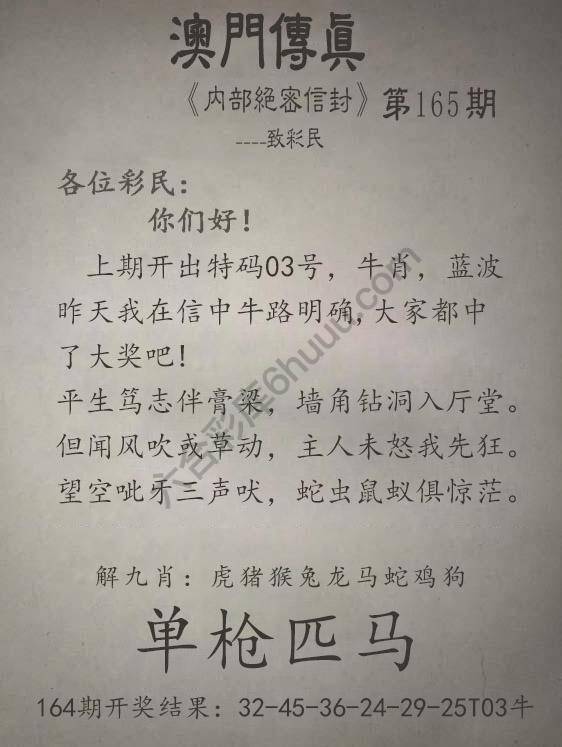 澳門傳眞
《内部絕密信封》第165期
----致彩民
各位彩民：
你们好！
上期开出特码03号，牛肖，蓝波
昨天我在信中牛路明确,大家都中
了大奖吧！
平生笃志伴膏梁，墙角钻洞入厅堂。
但闻风吹或草动，主人未怒我先狂。
望空呲牙三声吠，蛇虫鼠蚁俱惊茫。
六合彩库6huuu.com
解九肖：虎猪猴兔龙马蛇鸡狗
单枪匹马
164期开奖结果：32-45-36-24-29-25T03牛